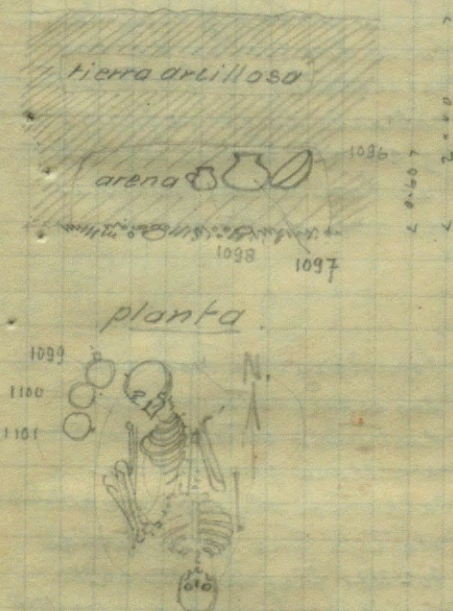 tierra arcillosa
arena
1096
0.60
1098
1097
planta
1099
N.
1100
1101